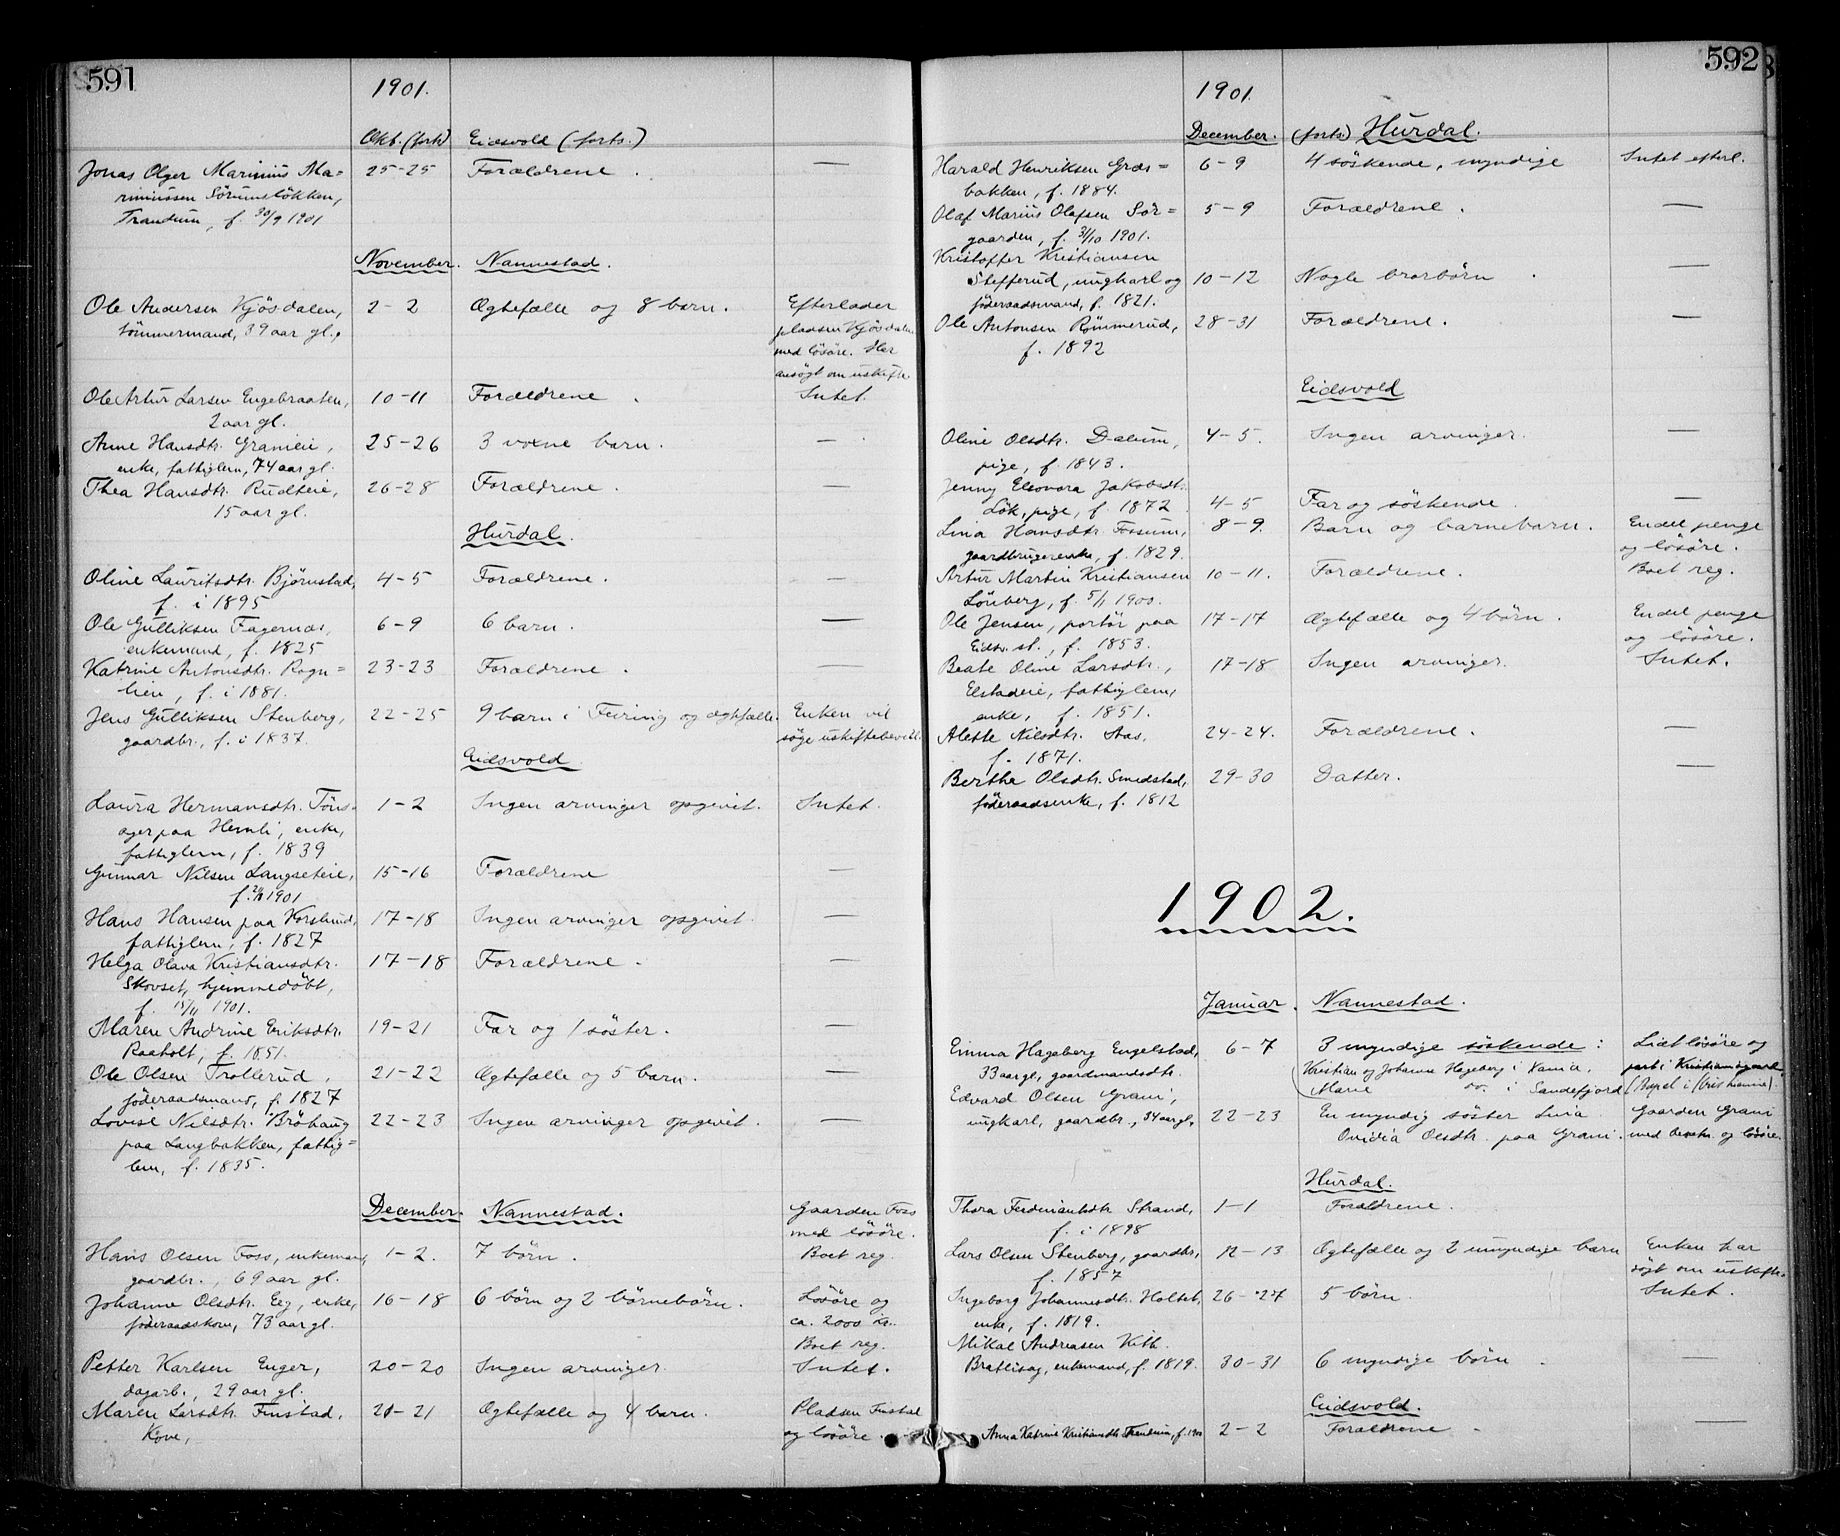 591
1901.
Okt. (forts) Eidsvold (forts.)
Jonas Olger Marinius Ma= 25-25 Forældrene. —
riniussen Sörumsløkken,
Trandum, f. 30/9 1901
November. Nannestad.
Ole Andersen Kjösdalen, 2-2 Ægtefælle og 8 barn. Efterlader
tömmermand, 39 aar gl., pladsen Kjösdalen
med lösöre. Har
ansögt om uskifte
Ole Artur Larsen Engebraaten, 10-11 Forældrene. Intet.
2 aar gl.
Anne Hansdtr. Granieie, 25-26 3 voxne barn. —
enke, fattiglem, 74 aar gl.
Thea Hansdtr. Rudteie, 26-28 Forældrene. —
15 aar gl.
Hurdal.
Oline Lauritsdtr. Björnstad, 4-5 Forældrene. —
f. i 1895
Ole Gulliksen Fagernæs, 6-9 6 barn. —
enkemand, f. 1825
Katrine Antonsdtr. Rogn= 23-23 Forældrene. —
lien, f. i 1881.
Jens Gulliksen Stenberg, 22-25 9 barn i Feiring og ægtefælle. Enken vil
gaardbr., f. i 1837. söge uskiftebevill.
Eidsvold
Laura Hermansdtr. Töns= 1-2 Ingen arvinger opgivet. Intet.
ager paa Hemli, enke,
fattiglem, f. 1839
Gunnar Nilsen Langseteie, 15-16 Forældrene —
f. 1901
Hans Hansen paa Korslund, 17-18 Ingen arvinger opgivet —
fattiglem, f. 1827
Helga Olava Kristiansdtr. 17-18 Forældrene. —
Skovset, hjemmedöbt,
f. 15/11 1901.
Maren Andrine Eriksdtr. 19-21 Far og 1 söster. —
Raaholt, f. 1851.
Ole Olsen Trollerud, 21-22 Ægtefælle og 5 barn. —
föderaadsmand, f. 1827
Lovise Nilsdtr. Bröhaug 22-23 Ingen arvinger opgivet. —
paa Langbakken, fattig=
lem, f. 1835.
December. Nannestad. Gaarden Foss
med lösöre.
Hans Olsen Foss, enkemand, 1-2. 7 börn. Boet reg.
gaardbr., 69 aar gl.
Johanne Olsdtr. Eeg, enke, 16-18 6 börn og 2 börnebörn. Lösöre og
föderaadskone, 73 aar gl. ca. 2000 kr.
Boet reg.
Petter Karlsen Enger, 20-20 Ingen arvinger. Intet.
dagarb., 29 aar gl.
Maren Larsdtr. Finstad, 21-21 Ægtefælle og 4 barn. Pladsen Finstad
Kone, og lösöre.
592
1901
December. (forts.) Hurdal.
Harald Henriksen Græs= 6-9 4 söskende, myndige Intet efterl.
bakken, f. 1884.
Olaf Marius Olafsen Sör= 5-9 Forældrene. —
gaarden, f. 31/10 1901.
Kristoffer Kristiansen
Stefferud, ungkarl og 10-12 Nogle brorbörn —
föderaadsmand, f. 1821.
Ole Antonsen Römmerud, 28-31 Forældrene. —
f. 1892
Eidsvold
Oline Olsdtr. Dalum, 4-5. Ingen arvinger. —
pige, f. 1843.
Jenny Eleonora Jakobsdtr.
Lök, pige, f. 1872 4-5 Far og söskende. —
Lina Hansdtr. Fossum, 8-9 Barn og barnebarn. Endel penge
gaardbrugerenke, f. 1829. og lösöre.
Artur Martin Kristiansen 10-11. Forældrene. Boet reg.
Lönberg, f. 5/1 1900.
Ole Jensen, portör paa 17-17 Ægtefælle og 4 börn. Endel penge
Eidsv. st., f. 1853. og lösöre.
Beate Oline Larsdtr., 17-18 Ingen arvinger. Intet.
Elstadeie, fattiglem,
enke, f. 1851.
Alette Nilsdtr. Aas, 24-24. Forældrene. —
f. 1871.
Berthe Olsdtr. Smedstad, 29-30 Datter. —
föderaadsenke, f. 1812
1902.
Januar. Nannestad.
Emma Hageberg Engelstad, 6-7 3 myndige söskende: Lidt lösöre og
33 aar gl., gaardmandsdtr. Kristian og Johanne Hageberg i part i Kristiania
Marie do. i Sandefjord (Bopel i Kristiania).
Edvard Olsen Grani,
ungkarl, gaardbr., 34 aar gl. 22-23 En myndig söster Lina Gaarden Grani
Ovidia Olsdtr. paa Grani. med besetn. og lösöre.
Hurdal.
Thora Ferdinantsdtr Strand, 1-1 Forældrene.
f. i 1898
Lars Olsen Stenberg, gaardbr., 12-13 Ægtefælle og 2 umyndige barn Enken har
f. 1857 sögt om uskifte.
Ingeborg Johannesdtr. Holtet, 26-27 5 börn. Intet.
enke, f. 1819.
Mikal Andreasen Kith
Brattisag, enkemand, f. 1819. 30-31 6 myndige börn. —
Eidsvold.
Anna Katrine Kristiansdtr Trandum, f. 1900 2-2 Forældrene. —